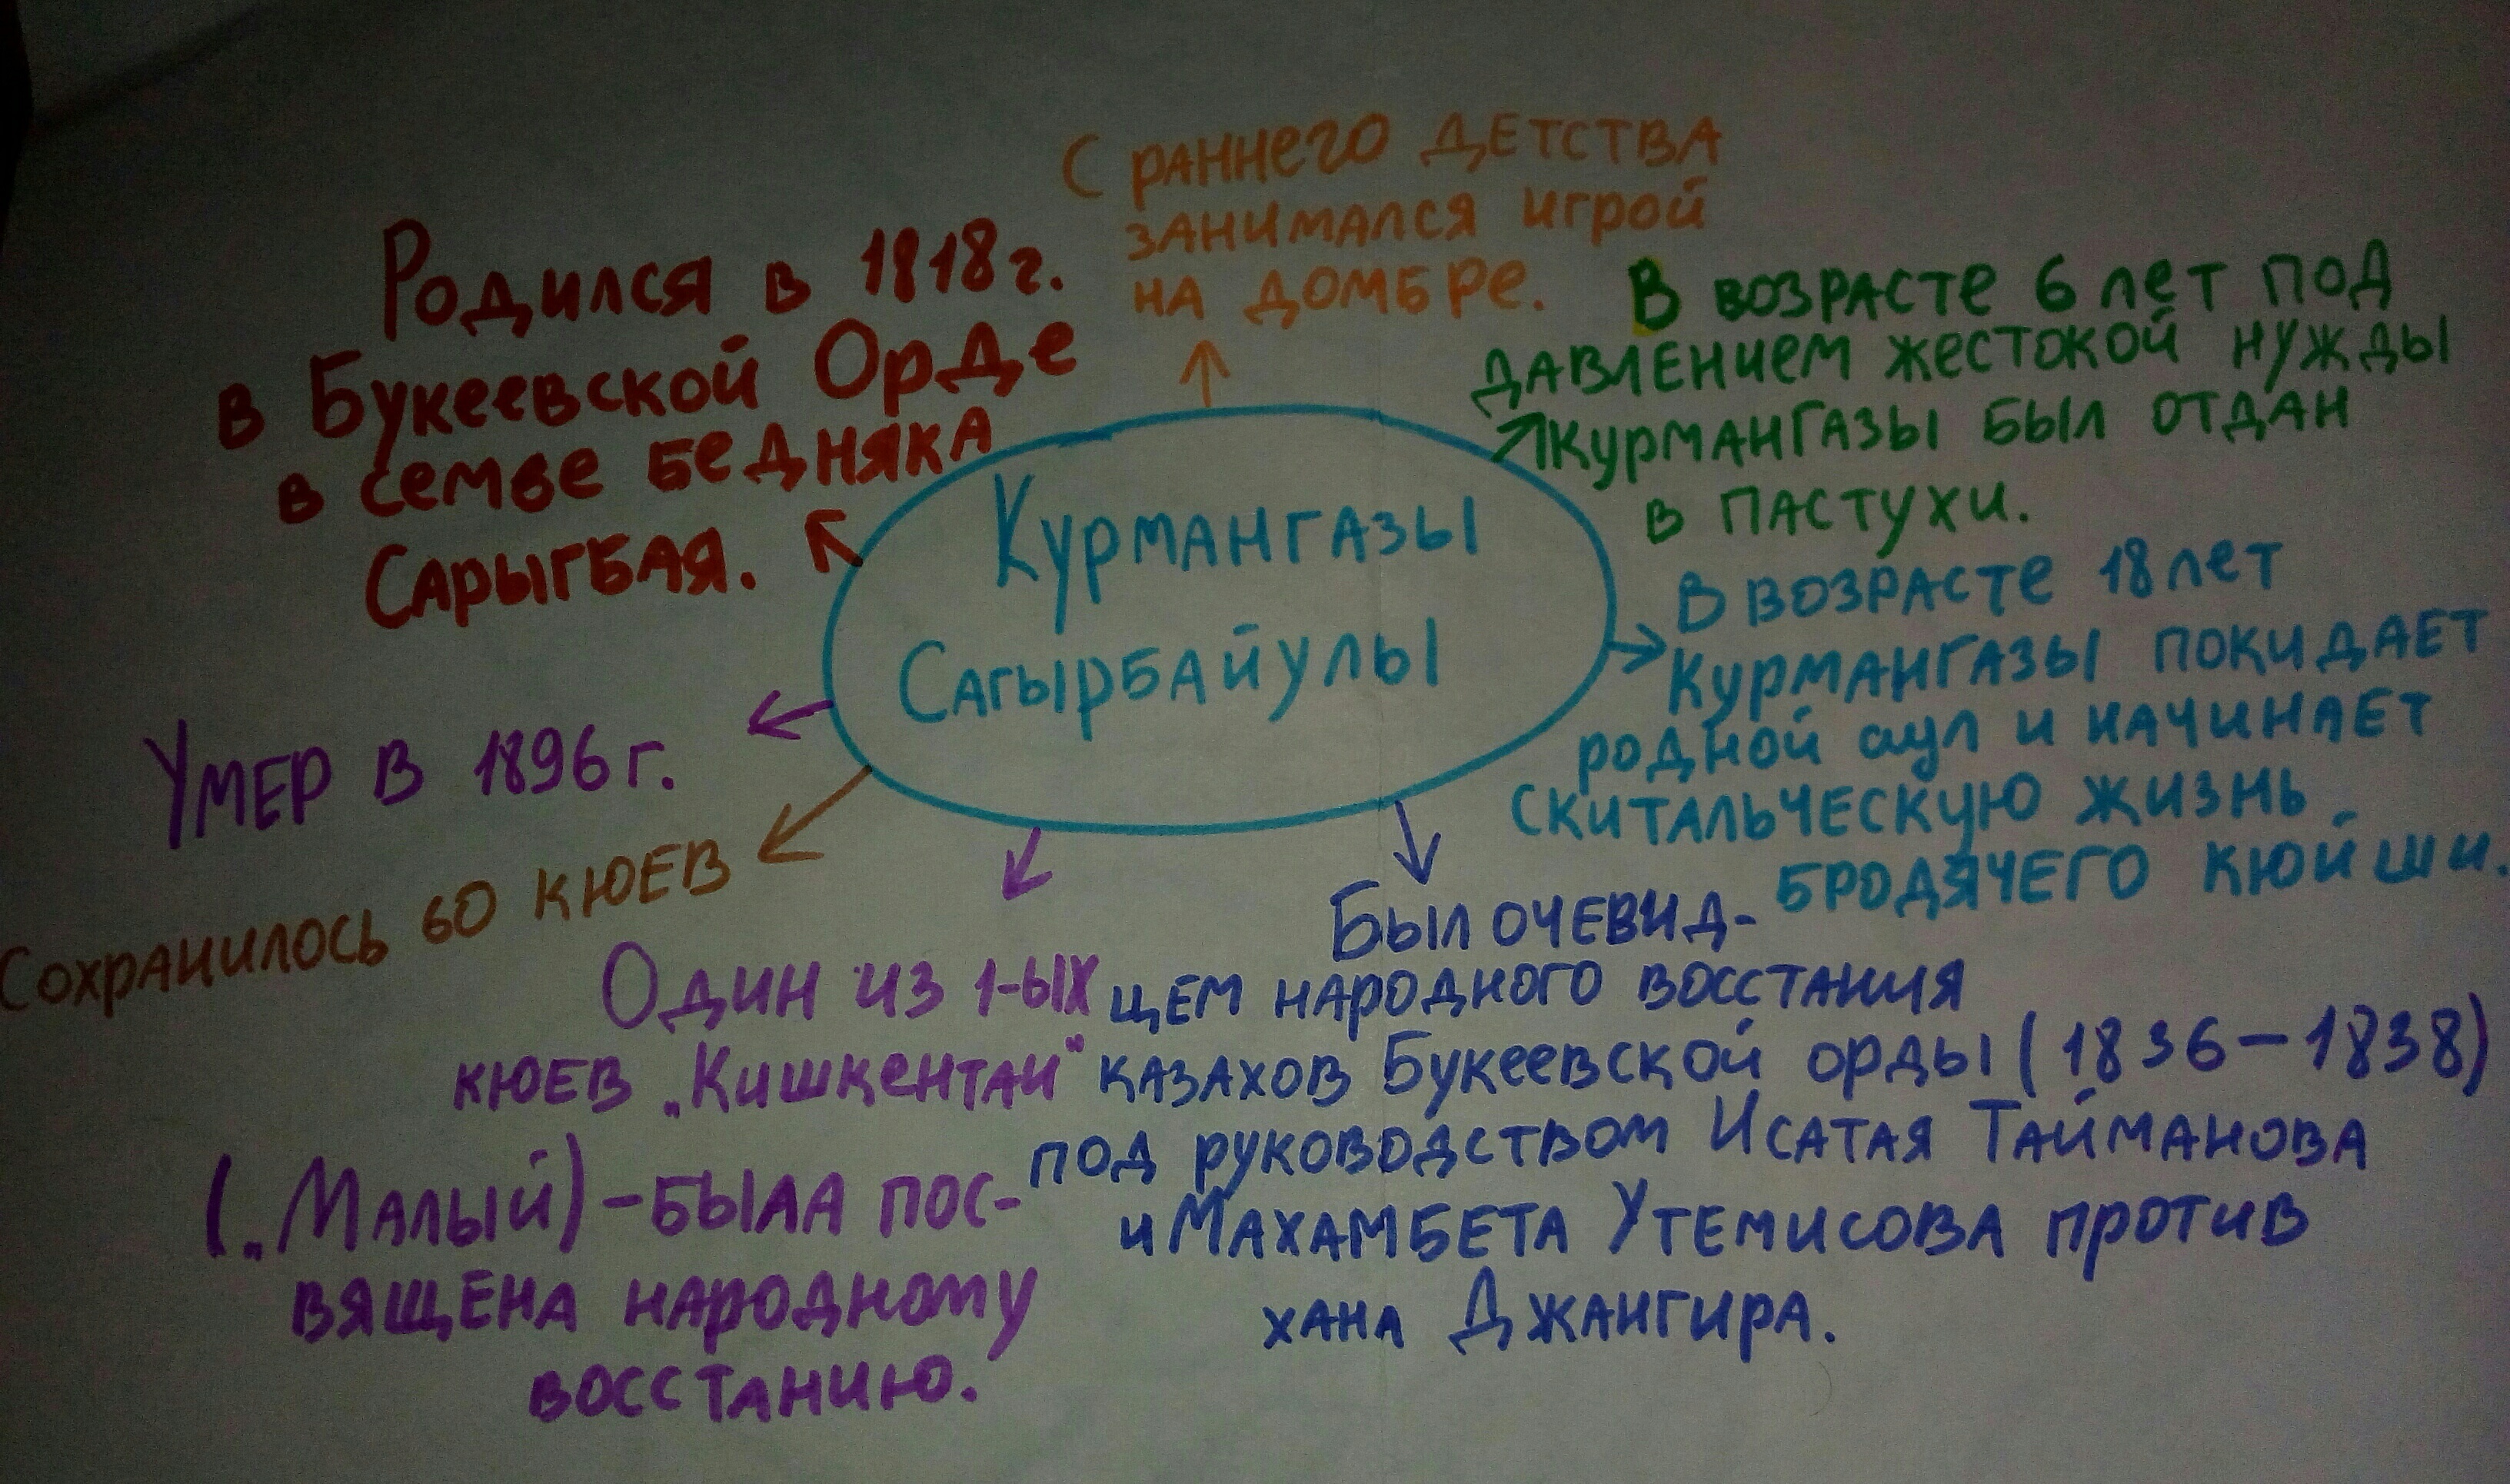 Курмангазы
Сагырбайулы
Родился в 1818г.
в Букеевской Орде
в семье бедняка
Сарыгбая.
С раннего детства
занимался игрой
на домбре.
В возрасте 6 лет под
давлением жестокой нужды
Курмангазы был отдан
в пастухи.
В возрасте 18 лет
Курмангазы покидает
родной аул и начинает
скитальческую жизнь
бродячего кюйши.
Был очевид-
цем народного восстания
казахов Букеевской орды (1836-1838)
под руководством Исатая Тайманова
и Махамбета Утемисова против
хана Джангира.
Один из 1-ых
кюев „Кишкентаи"
(„Малый) - быаа пос-
вящена народному
восстанию.
Сохранилось 60 кюев
Умер в 1896 г.